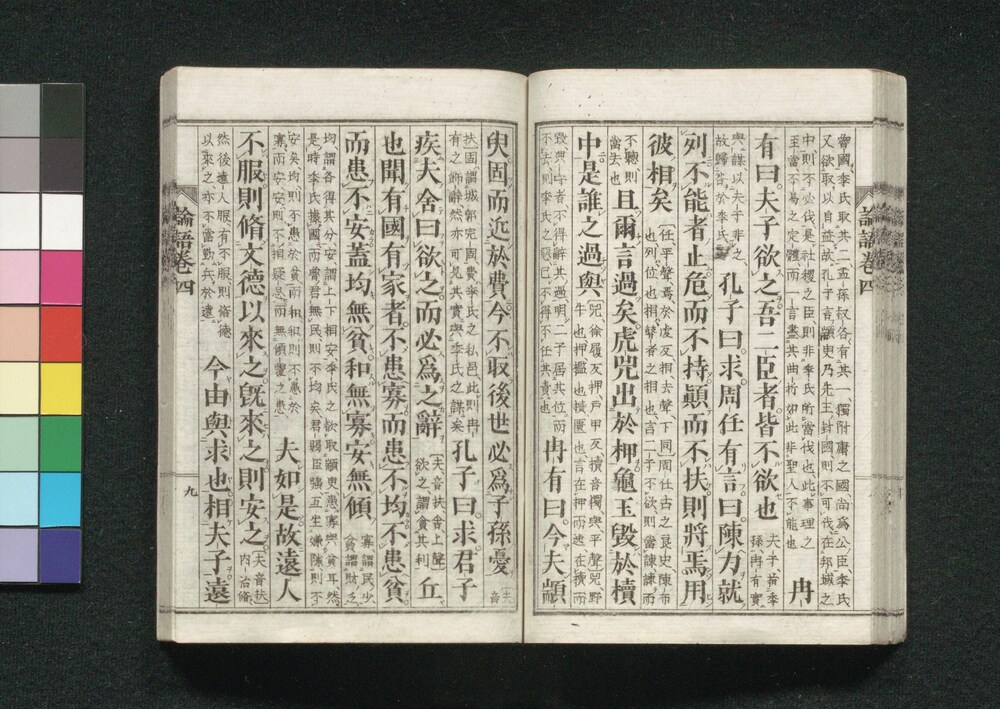 論語卷四
魯國季氏取其二孟孫叔各有其一獨附庸之國尚爲公臣季氏
又欲取以自益故孔子言顓臾乃先王封國則不可伐在邦域之
中則不必伐是社稷之臣則非季氏所當伐也此事理之
至當不易之定體而一言盡其曲折如此非聖人不能也
冉
有曰夫子欲之吾二臣者皆不欲也
夫子指季
孫冉有實
與謀以夫子非之
故歸咎於季氏
孔子曰求周任有言曰陳力就
列不能者止危而不持顚而不扶則將焉用
彼相矣
任平聲焉於虔反相去聲下同周任古之良史陳布
也列位也相瞽者之相也言二子不欲則當諫諫而
不聽則
當去也
且爾言過矣虎兕出於柙龜玉毀於櫝
中是誰之過與
兕徐履反柙戶甲反櫝音獨與平聲兕野
牛也柙檻也櫝匱也言在柙而逸在櫝而
毀典守者不得辭其過明二子居其位而
不去則季氏之惡已不得不任其責也
冉有曰今夫顓
臾固而近於費今不取後世必爲子孫憂
夫
音
扶固謂城郭完固費季氏之私邑此則冉
有之飾辭然亦可見其實與季氏之謀矣
孔子曰求君子
疾夫舍曰欲之而必爲之辭
夫音扶舍上聲
欲之謂貪其利
丘
也聞有國有家者不患寡而患不均不患貧
而患不安蓋均無貧和無寡安無傾
寡謂民少
貧謂財乏
均謂各得其分安謂上下相安季氏之欲取顓臾患寡與貧耳然
是時季氏據國而魯君無民則不均矣君弱臣强互生嫌隙則不
安矣均則不患於貧而和和則不患於
寡而安安則不相疑忌而無傾覆之患
夫如是故遠人
不服則脩文德以來之旣來之則安之
夫音扶
內治脩
然後遠人服有不服則脩德
以來之亦不當勤兵於遠
今由與求也相夫子遠
論語卷四
九